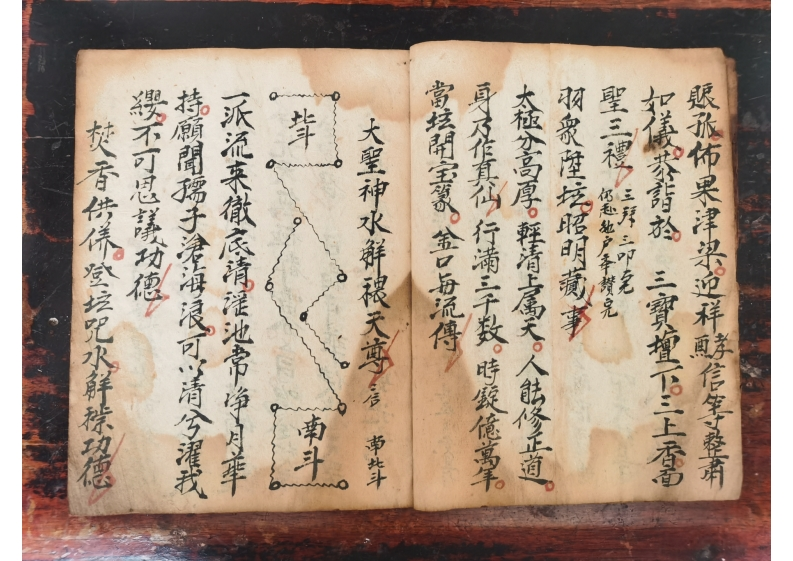 賬孤佈果津梁迎祥孝熏信等整肅
如儀恭詣於三寶壇下三上香面
聖三禮三拜三叩完
仍起地戶率讚完
羽衆陞坛昭明蕆事
太極分高厚輕清上属天人能修正道
身乃作真仙行滿三千数時錠億萬年
當坛開宝篆金口每流傳
大聖神水解穢天尊 言 南北斗
北斗
南斗
一派流来徹底清瑶池常净月華
持願聞孺子滄海浪可以清兮濯我
纓不可思議功德
焚香供養登坛咒水解穢功德